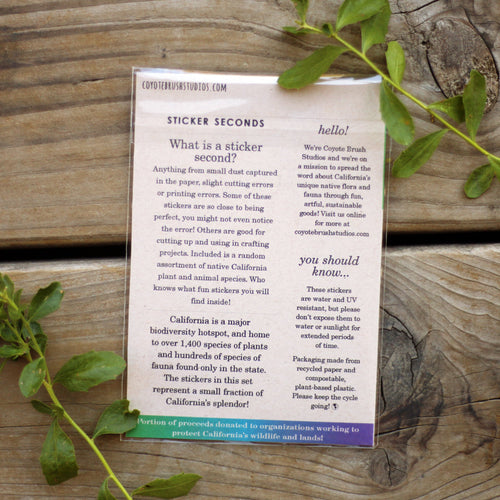 COYOTEBRUSHSTUDIOS.COM
STICKER SECONDS
What is a sticker
second?
Anything from small dust captured
in the paper, slight cutting errors
or printing errors. Some of these
stickers are so close to being
perfect, you might not even notice
the error! Others are good for
cutting up and using in crafting
projects. Included is a random
assortment of native California
plant and animal species. Who
knows what fun stickers you will
find inside!
California is a major
biodiversity hotspot, and home
to over 1,400 species of plants
and hundreds of species of
fauna found only in the state.
The stickers in this set
represent a small fraction of
California's splendor!
hello!
We're Coyote Brush
Studios and we're on
a mission to spread the
word about California's
unique native flora and
fauna through fun,
artful, sustainable
goods! Visit us online
for more at
coyotebrushstudios.com
you should
know...
These stickers
are water and UV
resistant, but please
don't expose them to
water or sunlight for
extended periods
of time.
Packaging made from
recycled paper and
compostable,
plant-based plastic.
Please keep the cycle
going!
Portion of proceeds donated to organizations working to
protect California's wildlife and lands!